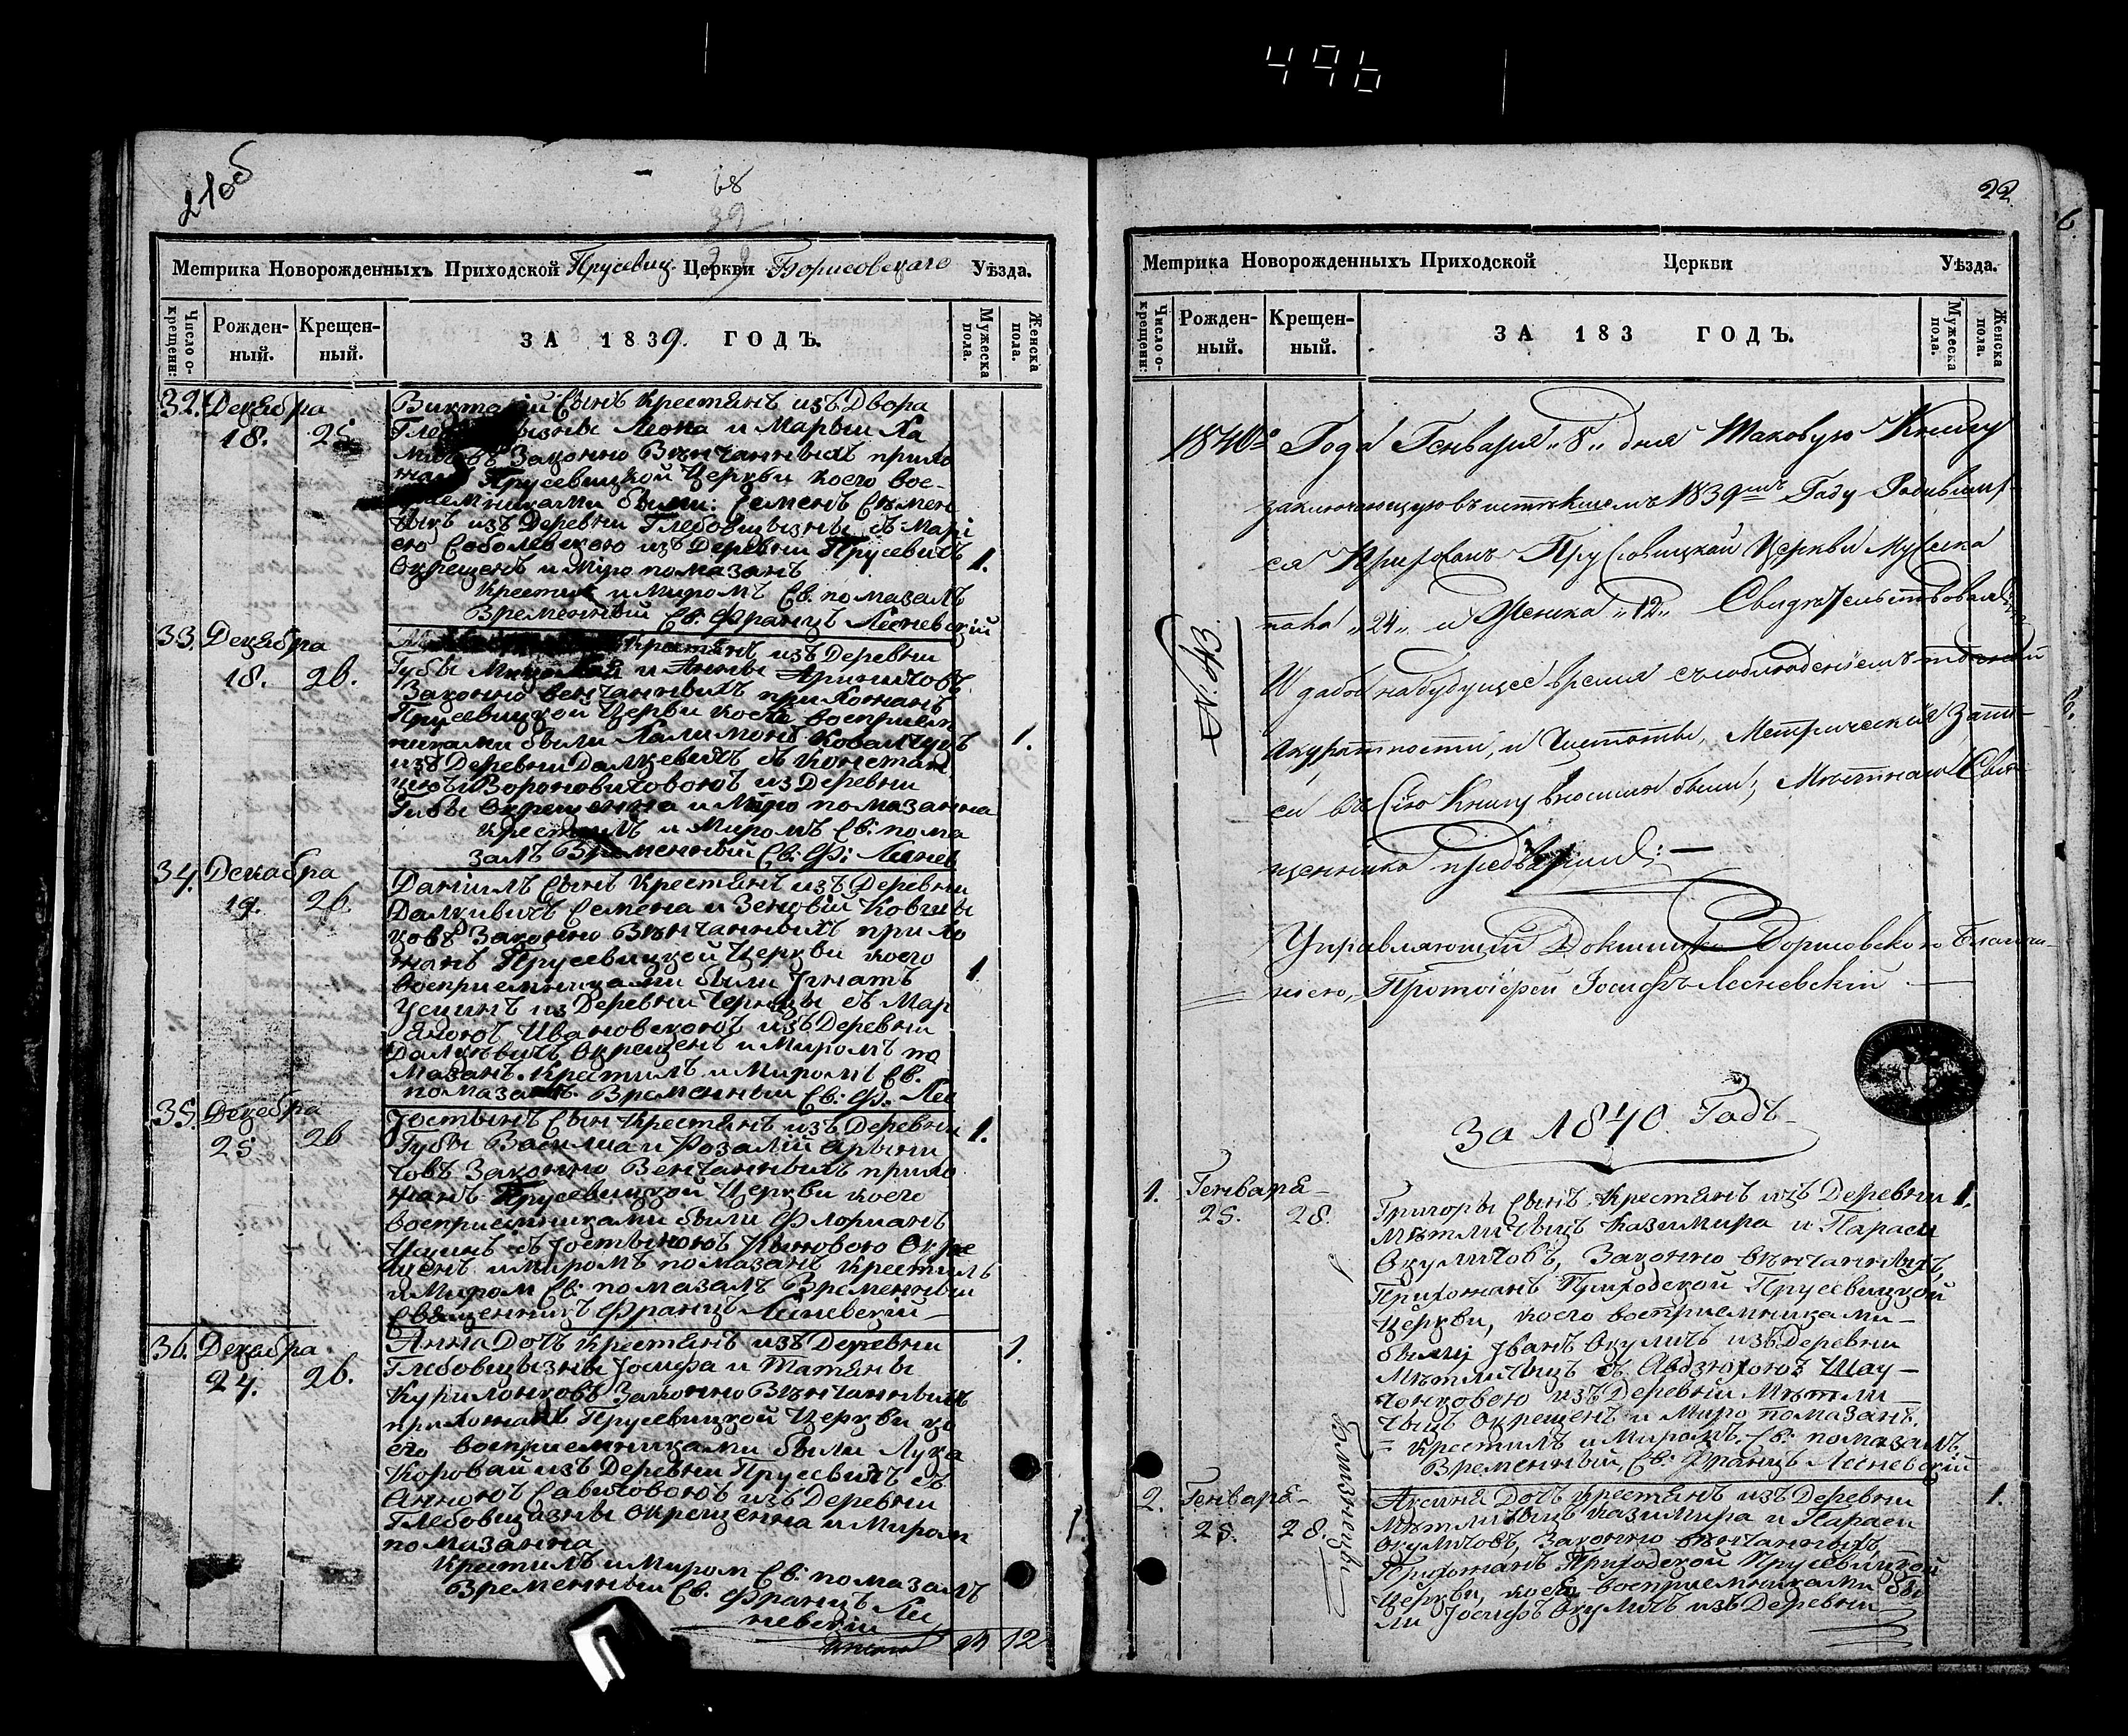 496
21об
68
39
29
Метрика Новорожденныхъ Приходской Прусевиц. Церкви Борисовскаго Уѣзда.
Число о-
крещенн:
Рожден-
ный.
Крещен-
ный.
ЗА 1839. ГОДЪ.
Мужеска
пола.
Женска
пола.
32. Декабра
18. 25
Сынъ Крестянъ изъ Двора
Леона и Марыи Ха
Законно Вѣнчанныхъ прихо
Прусевицкой Церкви коего вос-
были: Семенъ
изъ Деревни Глебовщызны съ Марі
ею Соболевскою изъ Деревни Прусевичъ
Окрещенъ и Миро помазанъ
1.
Крестилъ и Миромъ Св. помазалъ
Временный Св. Францъ Лесневскій
33. Декабра
18. 26.
Крестянъ изъ Деревни
Губы и Анны
Законно венчанныхъ прихожанъ
Прусевицкой Церви коея восприем
никами были Халимонъ Ковалчукъ
изъ Деревни Далцевичъ съ Констан
Вороновичовоюъ из Деревни
Губы Окрещенна и Миро помазанна
1.
Крестилъ и Миромъ Св: пома
залъ Временный Св: Ф: Леснев
34. Декабра
19. 26.
Даниилъ Сынъ Крестянъ изъ Деревни
Семена и Зеновіи
Законно Вѣнчанныхъ прихо
жанъ Прусевицкой Церкви коего
восприемниками были Игнатъ
Усцинъ из Деревни съ Мар
Ивановскоюъ изъ Деревни
Окрещенъ и Миромъ по
мазанъ. Крестилъ и Миромъ Св.
помазалъ. Временный Св: Ф. Лес
1
35. Декебра
25 26
Юстынъ Сын Крестянъ изъ Деревни
Губы Василиа и Розаліи
Законно Венчанныхъ прихо
жанъ Прусевицкой Церкви коего
восприемниками были Флорианъ
Усцинъ съ Юстыноюъ Окре
щенъ и Миромъ помазанъ Крестилъ
и Миром Св: помазалъ Временный
Священникъ Францъ Лесневский
1.
36. Декабра
24. 26.
Анна Дочъ Крестянъ изъ Деревни
Глебовщызны Іосифа и Татяны
Курилонковъ Законно Вѣнчанныхъ
прихожанъ Прусевицкой Церкви ко
его восприемниками были Лука
Коровай изъ Деревни Прусевичъ съ
Анноюъ Савичовоюъ изъ Деревни
Глебовщазны Окрещенна и Миром
помазанна
1.
Крестилъ и Миром Св: помазалъ
Временный Св. Францъ Лес
невский
24 12
22
Метрика Новорожденныхъ Приходской Церкви Уѣзда.
Число о-
крещенн:
Рожден-
ный.
Крещен-
ный.
ЗА 183 ГОДЪ.
Мужеска
пола.
Женска
пола.
1840го Года Генваря „8„ дня Таковую Книгу
заключающую въ истекшемъ 1839мъ Году Родивших-
ся Прихожанъ Прусовицкой Церкви Мужеска
пола „24„ и Женска „12„ Свидѣтельствовалъ
И дабы на будущее время съ соблюденіемъ точной
Акуратности, и Чистоты, Метрическія Запи-
си въ Сію Книгу вносимы были; Мѣстнаго Свя-
щенника предварилъ: —
№ 43.
Управляющій Докшицко Борисовскою Благочи-
ніею, Протоіерей Іосифъ Лесневскій
За 1840 Годъ
1. Генвара
25. 28.
Григоры Сынъ Крестянъ изъ Деревни
Казимира и Параси
Окуличовъ, Законно вѣнчанныхъ,
Прихожанъ Приходской Прусевицкой
Церкви, коего восприемниками
были Іванъ Окуличъ изъ Деревни
съ Авдзюхоюъ Шау-
чонковою изъ Деревни Мѣтли
чыцъ Окрещенъ и Миро помазанъ.
Крестилъ и Миромъ Св: помазалъ
Временный, Св: Францъ Лесневский
1.
Близнецы
2. Генвара
25. 28.
Аксиня Дочъ Крестянъ изъ Деревни
Казимира и Параси
Окуличовъ, Законно вѣнчанныхъ
Прихожанъ Приходской Прусевицкой
Церкви, коея восприемниками бы
ли Іосифъ Окуличъ изъ Деревни
1.